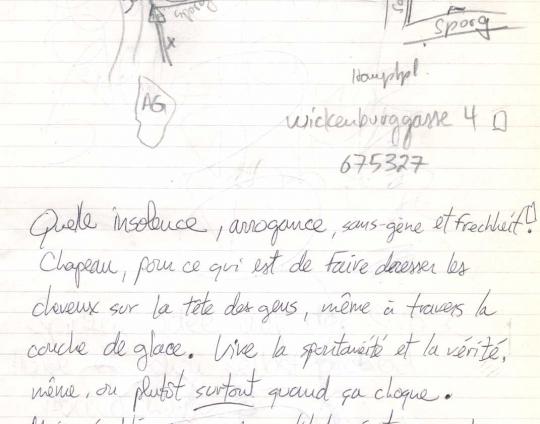 AG
Sparg
Hauptpl.
Wickenburggasse 4
675327
Quelle insolence, arrogance, sans-gène et Frechheit!
Chapeau, pour ce qui est de faire dresser les
cheveux sur la tête des gens, même à travers la
couche de glace. Vive la spontanéité et la vérité,
même, ou plutôt surtout quand ça choque.